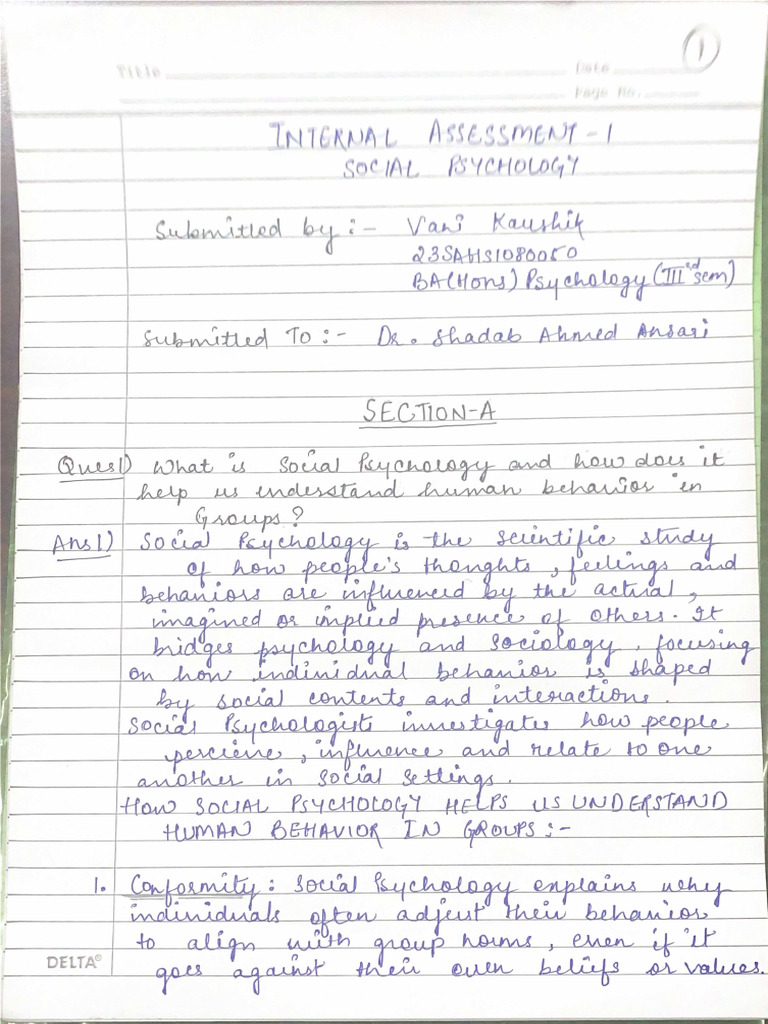 1
Title Date
Page No.
INTERNAL ASSESSMENT-1
SOCIAL PSYCHOLOGY
Submitted by:- Vani Kaushik
23SAHS1080050
BA(Hons) Psychology (III rd sem)
Submitted To:- Dr. Shadab Ahmed Ansari
SECTION-A
Ques1) What is Social Psychology and how does it
help us understand human behavior in
Groups?
Ans1) Social Psychology is the scientific study
of how people's thoughts, feelings and
behaviors are influenced by the actual,
imagined or implied presence of others. It
bridges psychology and sociology, focusing
on how individual behavior is shaped
by social contents and interactions.
Social Psychologists investigate how people
percieve, influence and relate to one
another in social settings.
HOW SOCIAL PSYCHOLOGY HELPS US UNDERSTAND
HUMAN BEHAVIOR IN GROUPS:-
1. Conformity: Social Psychology explains why
individuals often adjust their behavior
to align with group norms, even if it
goes against their own beliefs or values.
DELTA©